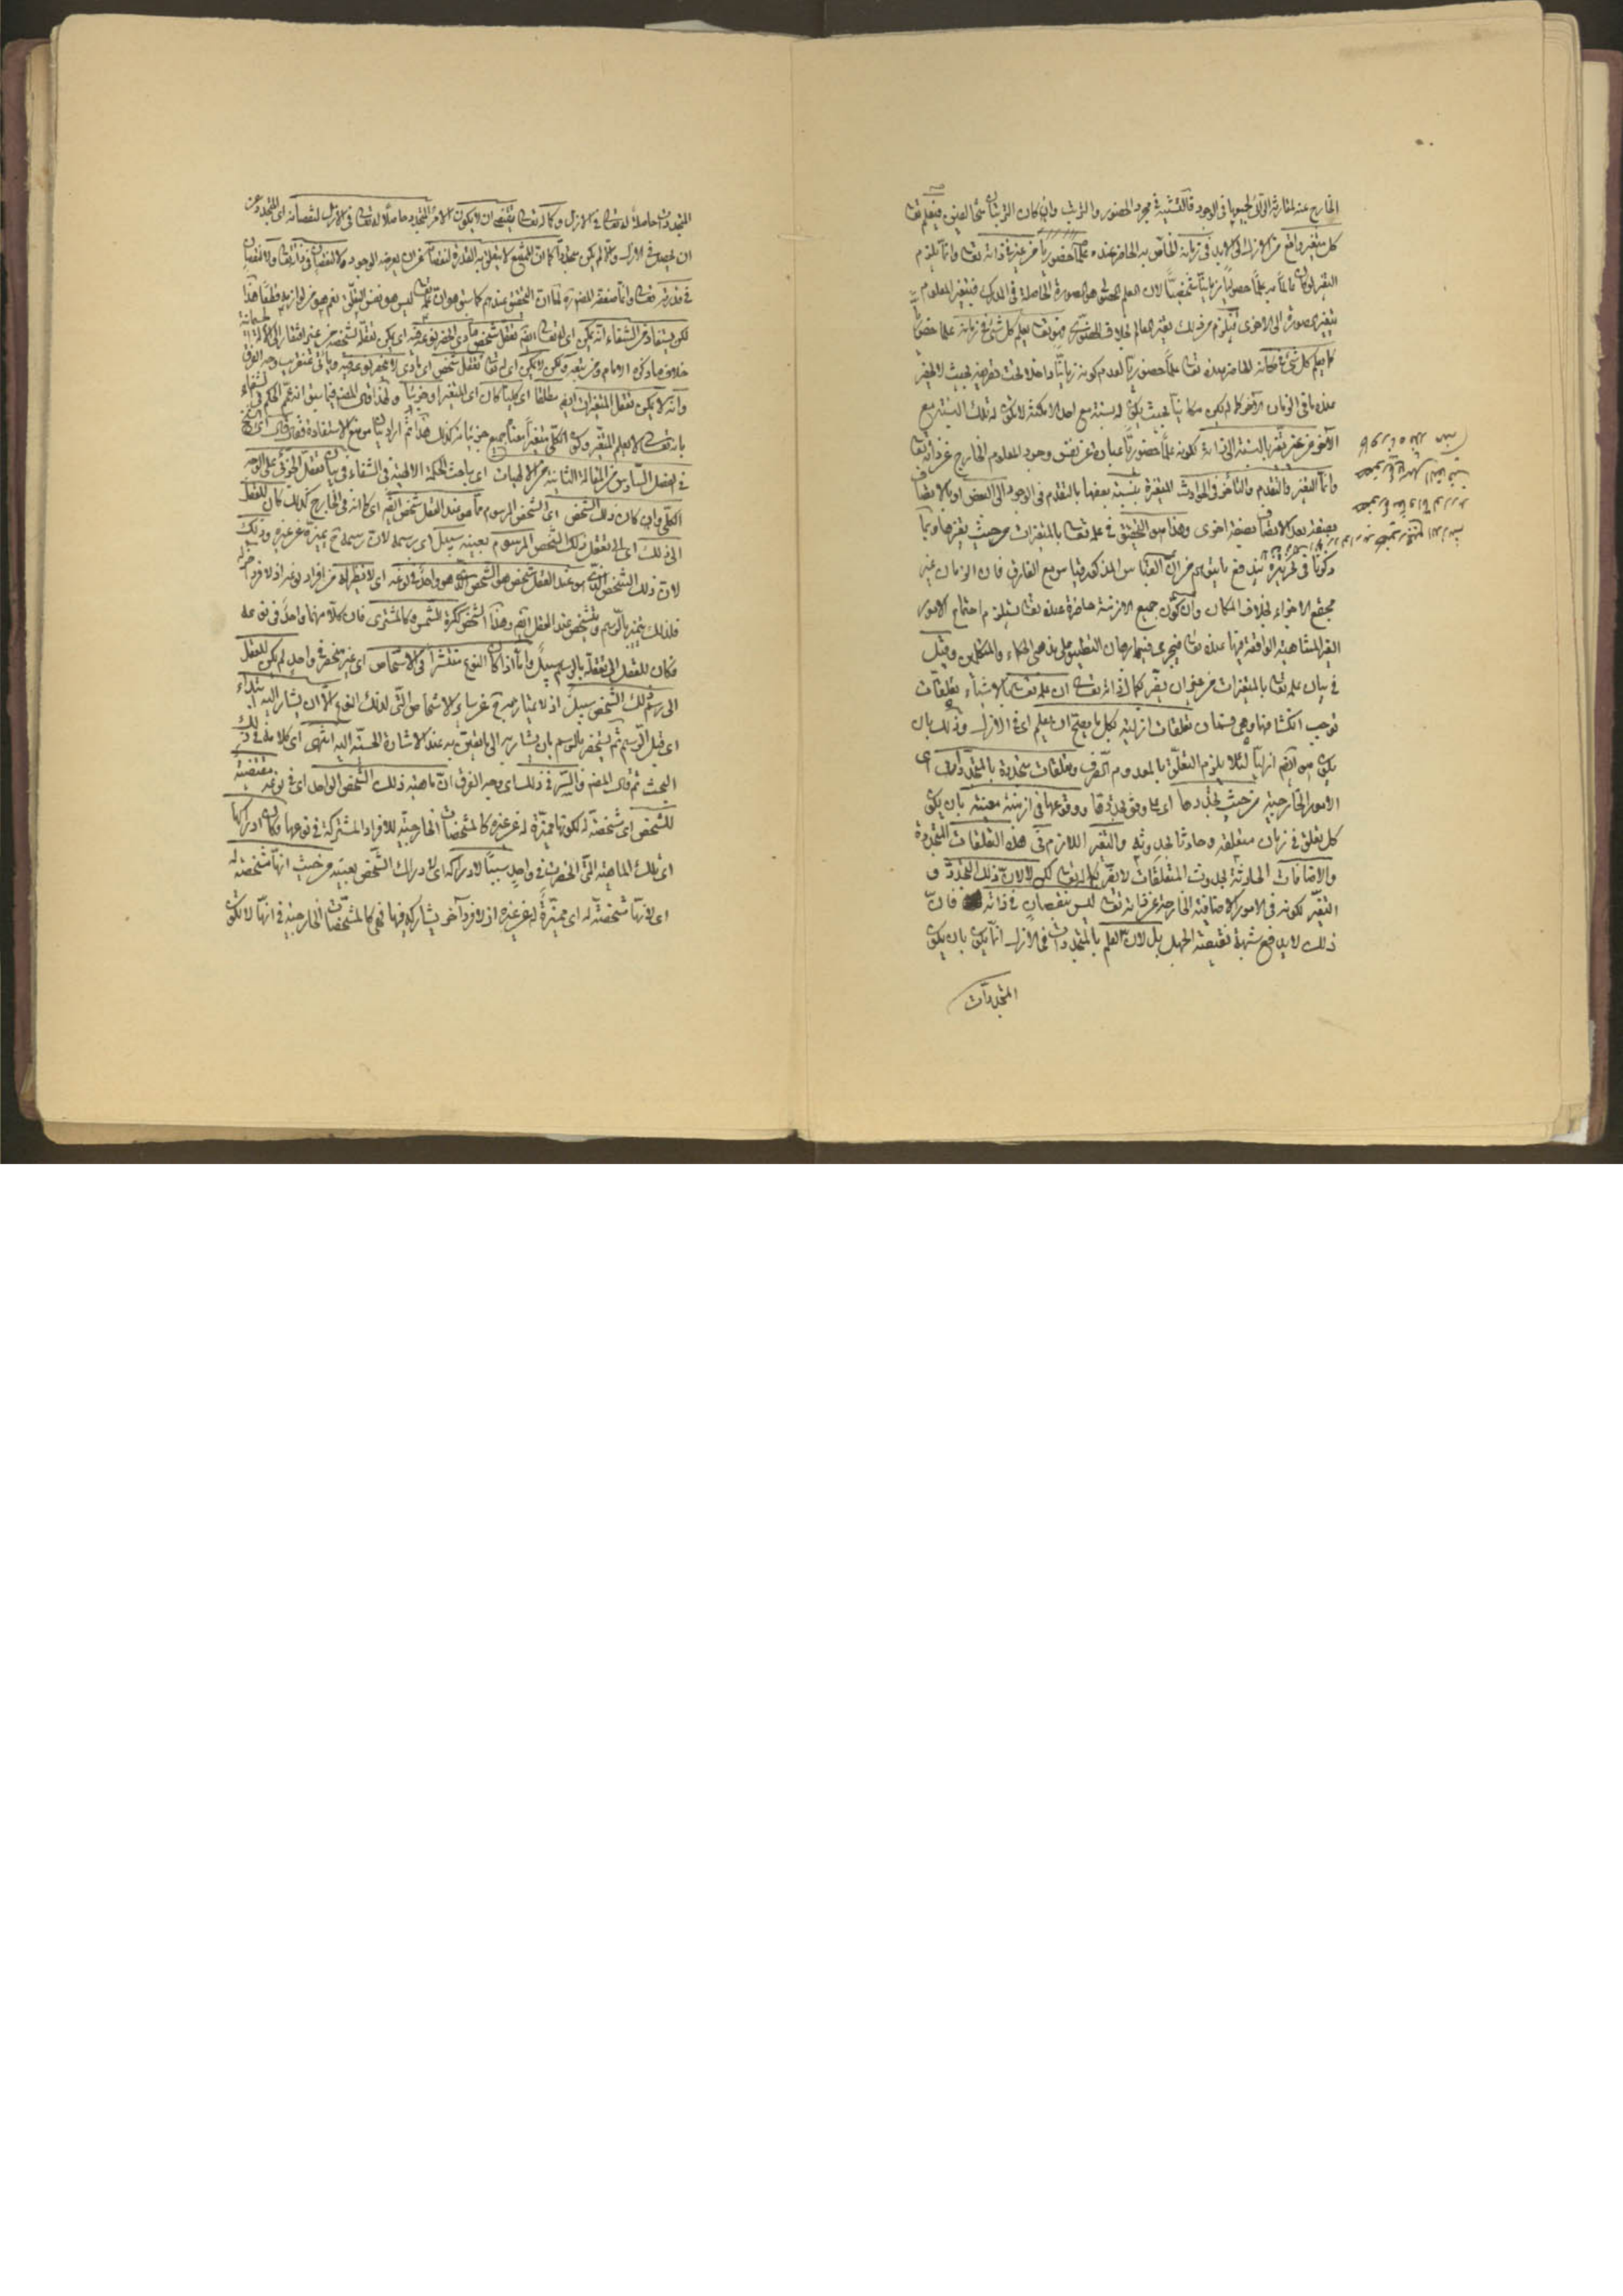 الخارج عنه لمقارنة الاوّل لجميعها في الوجود فالتشبيه في مجرد الحضور والترتب وان كان الترتبان شيئا العيني فيعلم تعالى
كل متغير واقع من الازل الى الابد في زمانه الخاص به الحاضر عنده علما حضوريا من غير تغير في ذاته تعالى وانما يلزم
التغير لو كان عالما به علما حصوليا زمانيا شخصيا لان العلم الحصولي هو الصورة الحاصلة في المدرك فيتغير المعلوم
بتغير صورة الى الاخرى فيلزم من ذلك تغير العالم بخلاف الحضوري فهو تعالى يعلم كل شيء في زمانه علما حضوريا
كما يعلم كل شيء في مكانه الحاضر عنده تعالى علما حضوريا لعدم كونه زمانيا داخلا تحت تصرفه بحيث لا يحضر
عنده ما في الزمان الآخر كما لم يكن مكانيا بحيث يكون له نسبة مع احد الامكنة لا يكون له تلك النسبة مع
الآخر من غير تغير بالنسبة الى ذاته لكونه علما حضوريا عبارة عن نفس وجود المعلوم الخارج عن ذاته تعالى
وانما التغير والتقدم والتأخر في الحوادث المتغيرة بنسبة بعضها بالتقدم في الوجود الى البعض او بالاتصاف
بصفة بعد الاتصاف بصفة اخرى وهذا هو التحقيق في علمه تعالى بالمتغيرات من حيث تغيرها وبما
ذكرنا في تحريره يندفع ما يتوهم من ان القياس المذكور قياس مع الفارق فان الزمان غير
مجتمع الاجزاء بخلاف المكان وان كون جميع الازمنة حاضرة عنده تعالى يستلزم اجتماع الامور
الغير المتناهية الواقعة فيها عنده تعالى فيجري فيها برهان التطبيق على مذهبي الحكماء والمتكلمين وقيل
في بيان علمه تعالى بالمتغيرات من غير ان يتغير كمال ذاته تعالى ان علمه تعالى بالاشياء بتعلقات
توجب انكشافها وهي قسمان تعلقات ازلية بكل ما يصح ان يعلم اي في الازل وذلك بان
يكون هو ايضا ازليا لئلا يلزم التعلق بالمعدوم الصرف وتعلقات متجددة بالمتجددات اي
الامور الخارجية من حيث تجددها اي على وفق حدوثها ووقوعها في ازمنة معينة بان يكون
كل تعلق في زمان متعلقه وحادثا بحدوثه والتغير اللازم في هذه التعلقات المتجددة
والاضافات الحادثة بحدوث المتعلقات لا يغير كماله تعالى لكن لا لان ذلك التجدد و
التغير لكونه في الامور الاضافية الخارجة عن ذاته تعالى ليس بنقصان في ذاته فان
ذلك لا يدفع شبهة نقيصة الجهل بل لان العلم بالمتجددات في الازل انما يكون بان يكون
المتجددات
المتجددات حاصلة له تعالى في الازل وكماله تعالى يقتضي ان لا يكون الامر المتجدد حاصلا له تعالى في الازل لنقصانه اي المتجدد عن
ان يحصل في الازل والا لم يكن متجددا كما ان الممتنع لا يتعلق به القدرة لنقصانه عن ان يعرضه الوجود لا لنقصان في ذاته تعالى ولا لنقصان
في قدرته تعالى وانما
لكن يستفاد من الشفاء انه يمكن اي له تعالى ايضا تعقل شخص مادي انحصر نوعه فيه اي يمكن تعقله بشخصه من غير افتقار الى آلة
خلاف ما ذكره الامام ومن تبعه ولكن لا يمكن اي له تعالى تعقل شخص اي مادي لا ينحصر نوعه فيه ويأتي عنقريب وجه الفرق
وانه لا يمكن تعقل المتغيرات ايضا مطلقا اي كليا كان اي المتغير او جزئيا ولهذا قال المصنف فيما سبق انه عمم الحكم في الشفاء
بانه تعالى لا يعلم المتغير وكون الكلي متغيرا بمعنى جميع جزئياته كذلك هذا ثم اراد بيان موضع الاستفادة فقال قال اي الشيخ
في الفصل السادس من المقالة الثامنة من الالهيات اي مباحث الحكمة الالهية في الشفاء في بيان تعقل الجزئي على الوجه
الكلي وان كان ذلك الشخص اي الشخص المرسوم مما هو عند العقل شخص ايضا اي كما انه في الخارج كذلك كان للعقل
الى ذلك اي الى تعقل ذلك الشخص المرسوم بعينه سبيل اي برسمه لان رسمه ح يميزه عن غيره وذلك
لان ذلك الشخص الذي هو عند العقل شخص هو الشخص الذي هو واحد في نوعه اي لا نظير له من افراد نوعه اذ لا فرد آخر له
فلذلك يتميز بالرسم ويتشخص عند العقل ايضا وهذا الشخص ككرة الشمس وكالمشتري فان كلا منهما واحد في نوعه
فكان للعقل الى تعقله بالرسم سبيل واما اذا كان النوع منتشرا في الاشخاص اي غير منحصر في واحد لم يكن للعقل
الى رسم ذلك الشخص سبيل اذ لا يمتاز به ح عن سائر الاشخاص التي لذلك النوع الا ان يشار اليه ابتداء
اي قبل الرسم ثم يستحضر بالرسم بان يشار به الى ما تعين به عند الاشارة الحسية اليه انتهى اي كلامه في ذلك
البحث ثم قال المصنف والسر في ذلك اي وجه الفرق ان ماهية ذلك الشخص الواحد اي في نوعه مقتضية
للشخص اي مشخصة له لكونها مميزة له عن غيره كالمشخصات الخارجية للافراد المشتركة في نوعها وكان ادراكها
اي تلك الماهية التي انحصرت في واحد سببا لادراكه اي لادراك الشخص بعينه من حيث انها مشخصة له
اي لانها مشخصة له اي مميزة له عن غيره اذ لا فرد آخر يشاركه فيها فهي كالمشخصات الخارجية في انها لا تكون